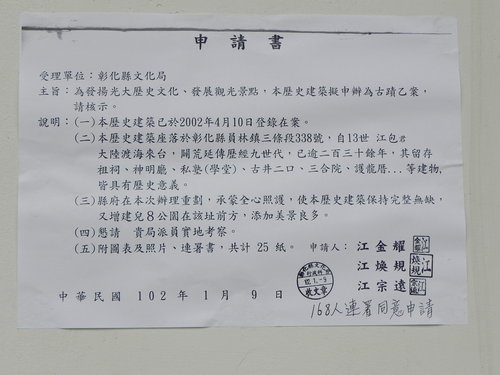 申請書
受理單位：彰化縣文化局
主旨：為發揚光大歷史文化、發展觀光景點，本歷史建築擬申辦為古蹟乙案，
請核示。
說明：(一)本歷史建築已於2002年4月10日登錄在案。
(二)本歷史建築座落於彰化縣員林鎮三條段338號，自13世 江包君
大陸渡海來台，闢荒延傳歷經九世代，已逾二百三十餘年，其留存
祖祠、神明廳、私塾(學堂)、古井二口、三合院、護龍厝...等建物，
皆具有歷史意義。
(三)縣府在本次辦理重劃，承蒙全心照護，使本歷史建築保持完整無缺，
又增建兒8公園在該址前方，添加美景良多。
(四)懇請 貴局派員實地考察。
(五)附圖表及照片、連署書，共計 25 紙。 申請人：江金耀
江煥規
江宗遠
彰化縣文化局
102.1.-9
收文章
中華民國 102 年 1 月 9 日
168人連署同意申請